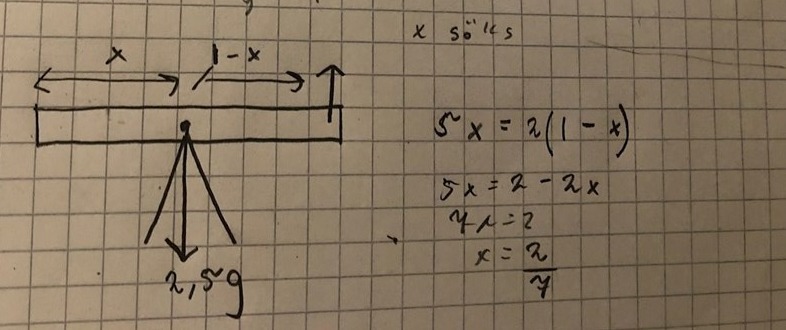 x söks
x 1-x
5x = 2(1 - x)
5x = 2 - 2x
7x = 2
x = 2/7
2,5g